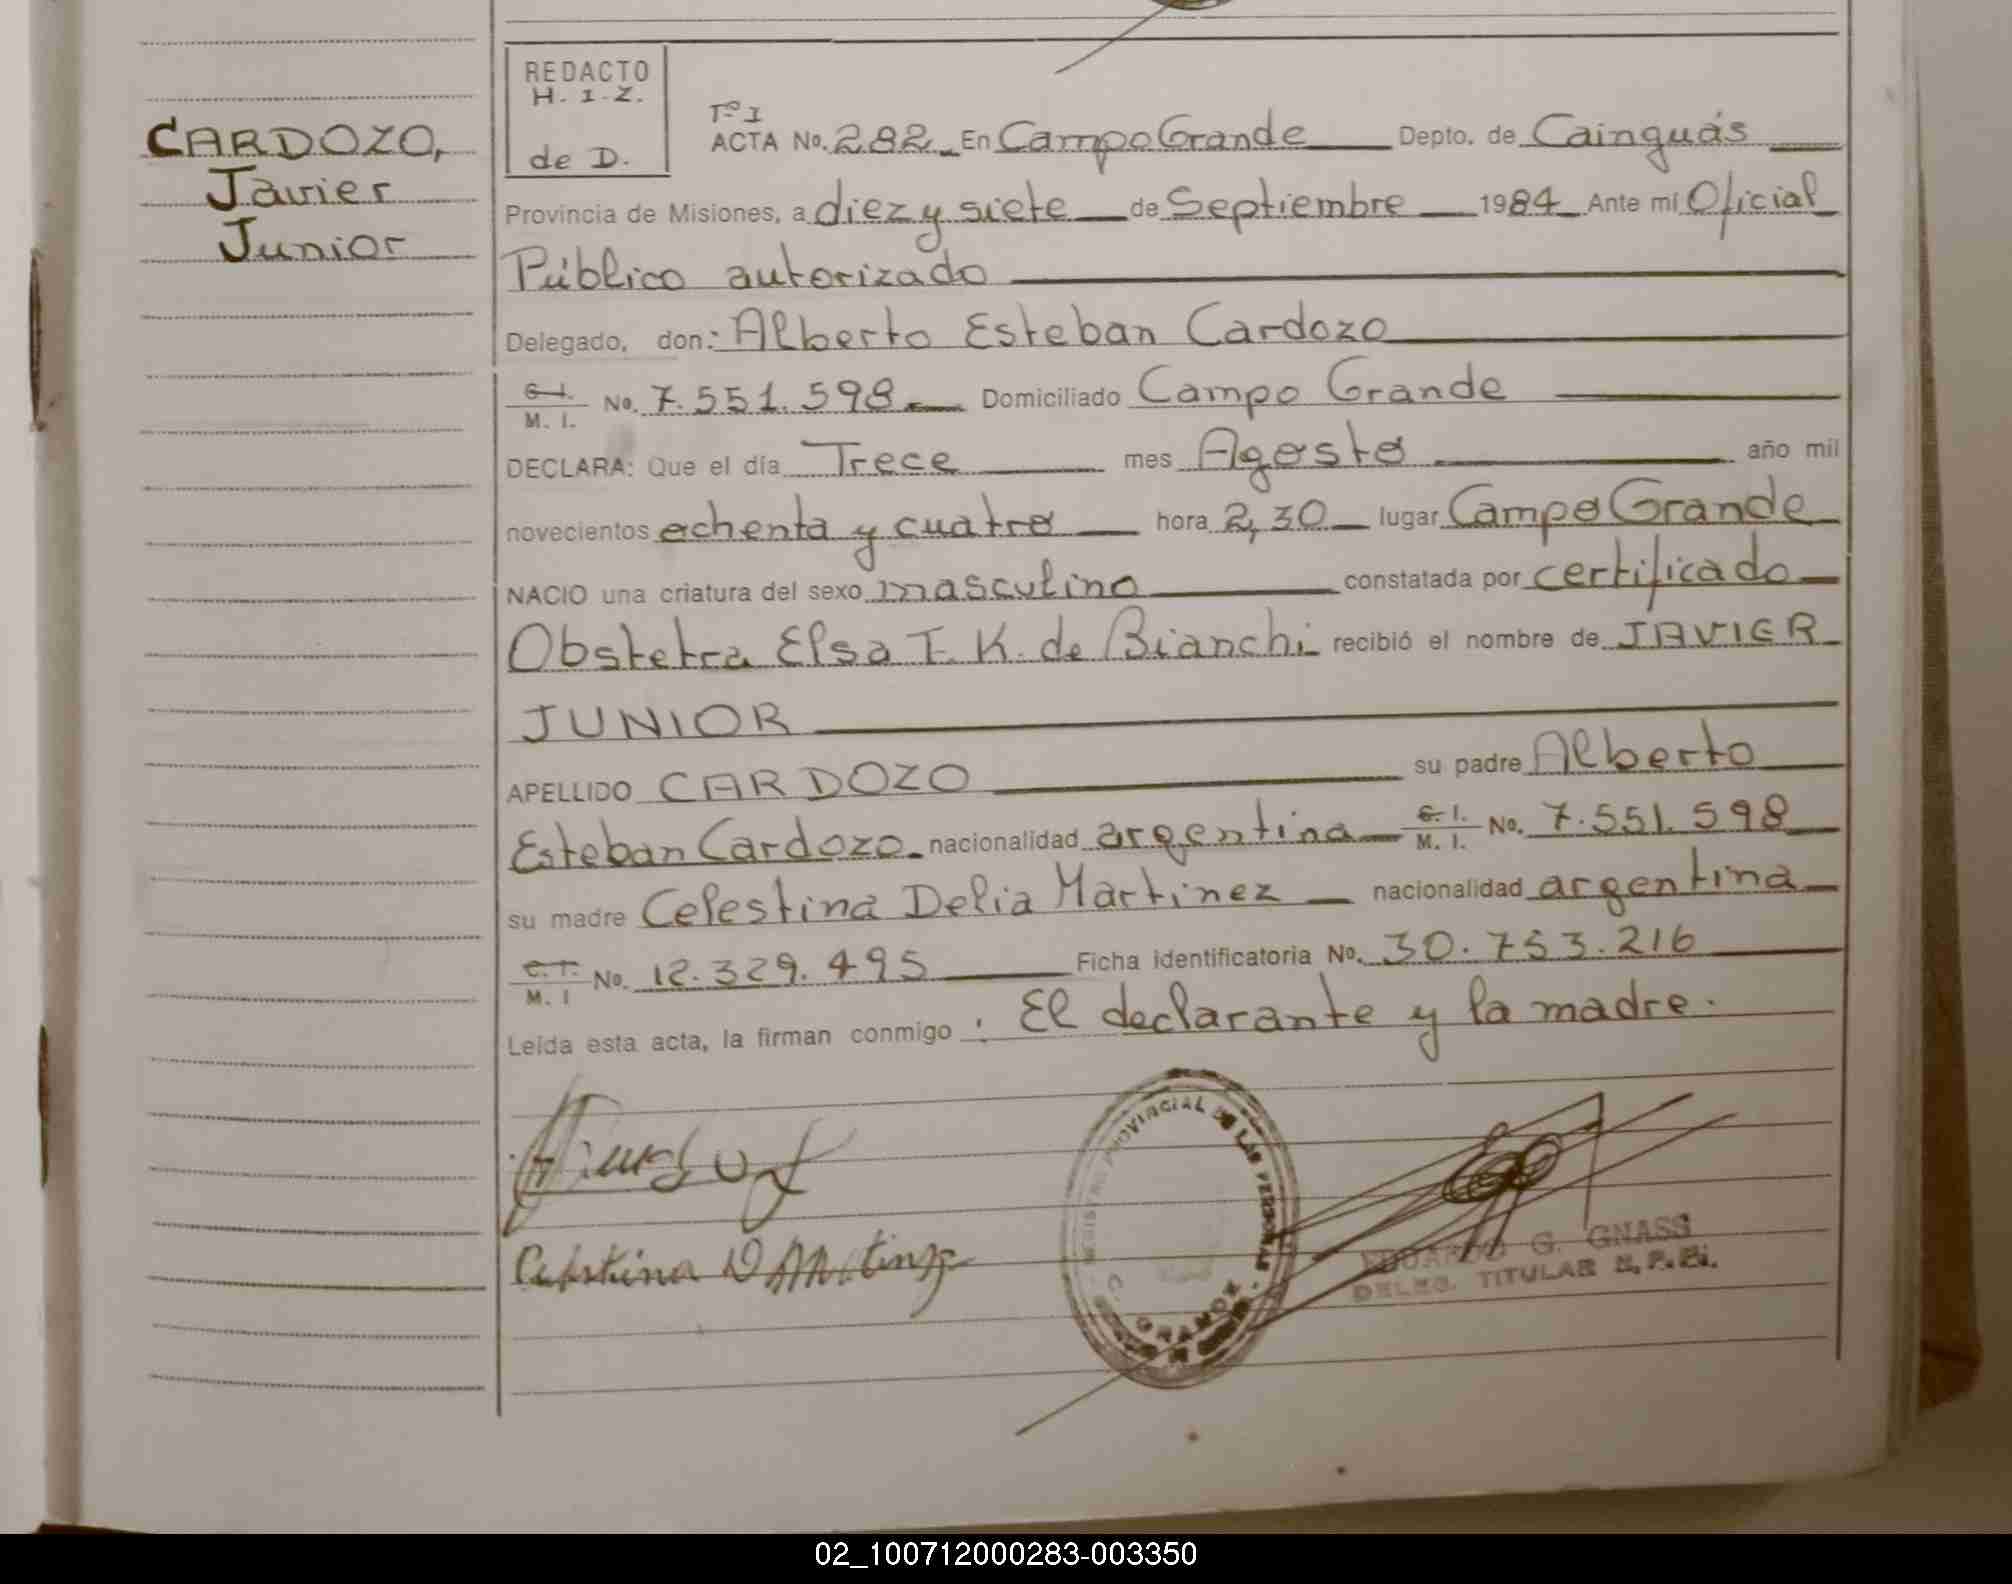 CARDOZO,
Javier
Junior
REDACTO
H. I. Z.
de D.
Tº I
ACTA No. 282 En Campo Grande Depto. de Cainguás
Provincia de Misiones, a diez y siete de Septiembre 1984 Ante mí Oficial
Público autorizado
Delegado, don: Alberto Esteban Cardozo
C. I. M. I. No. 7.551.598 Domiciliado Campo Grande
DECLARA: Que el día Trece mes Agosto año mil
novecientos ochenta y cuatro hora 2,30 lugar Campo Grande
NACIO una criatura del sexo masculino constatada por certificado
Obstetra Elsa T. K. de Bianchi recibió el nombre de JAVIER
JUNIOR
APELLIDO CARDOZO su padre Alberto
Esteban Cardozo nacionalidad argentina C. I. M. I. No. 7.551.598
su madre Celestina Delia Martinez nacionalidad argentina
C. I. M. I No. 12.329.495 Ficha identificatoria No. 30.753.216
Leída esta acta, la firman conmigo : El declarante y la madre.
PROVINCIAL DE LAS PERSONAS
C. GRANDE
EDUARDO G. GNASS
DELEG. TITULAR
02_100712000283-003350